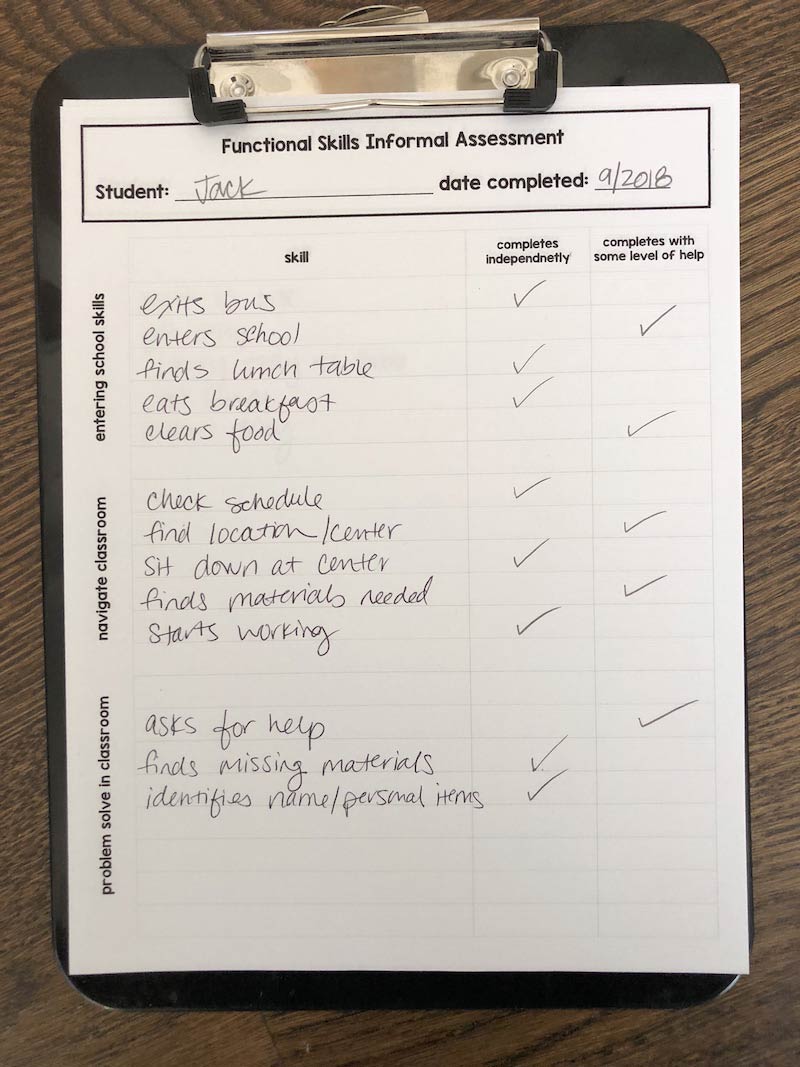 Functional Skills Informal Assessment
Student: Jack date completed: 9/2018
skill completes independnetly completes with some level of help
entering school skills
exits bus ✓
enters school ✓
finds lunch table ✓
eats breakfast ✓
clears food ✓
navigate classroom
check schedule ✓
find location/center ✓
sit down at center ✓
finds materials needed ✓
starts working ✓
problem solve in classroom
asks for help ✓
finds missing materials ✓
identifies name/personal items ✓